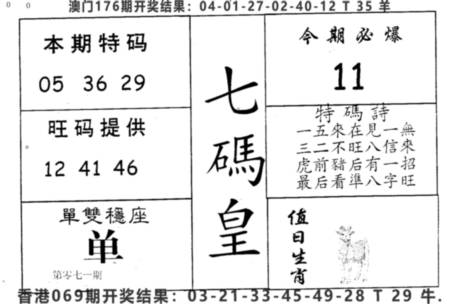 澳门176期开奖结果：04-01-27-02-40-12 T 35 羊
本期特码
05 36 29
旺码提供
12 41 46
單雙穩座
单
第零七一期
七碼皇
今期必爆
11
特碼詩
一五來在見一無
三二不旺八信來
虎前豬后有一招
最后看準八字旺
值日生肖
香港069期开奖结果：03-21-33-45-49-28 T 29 牛.